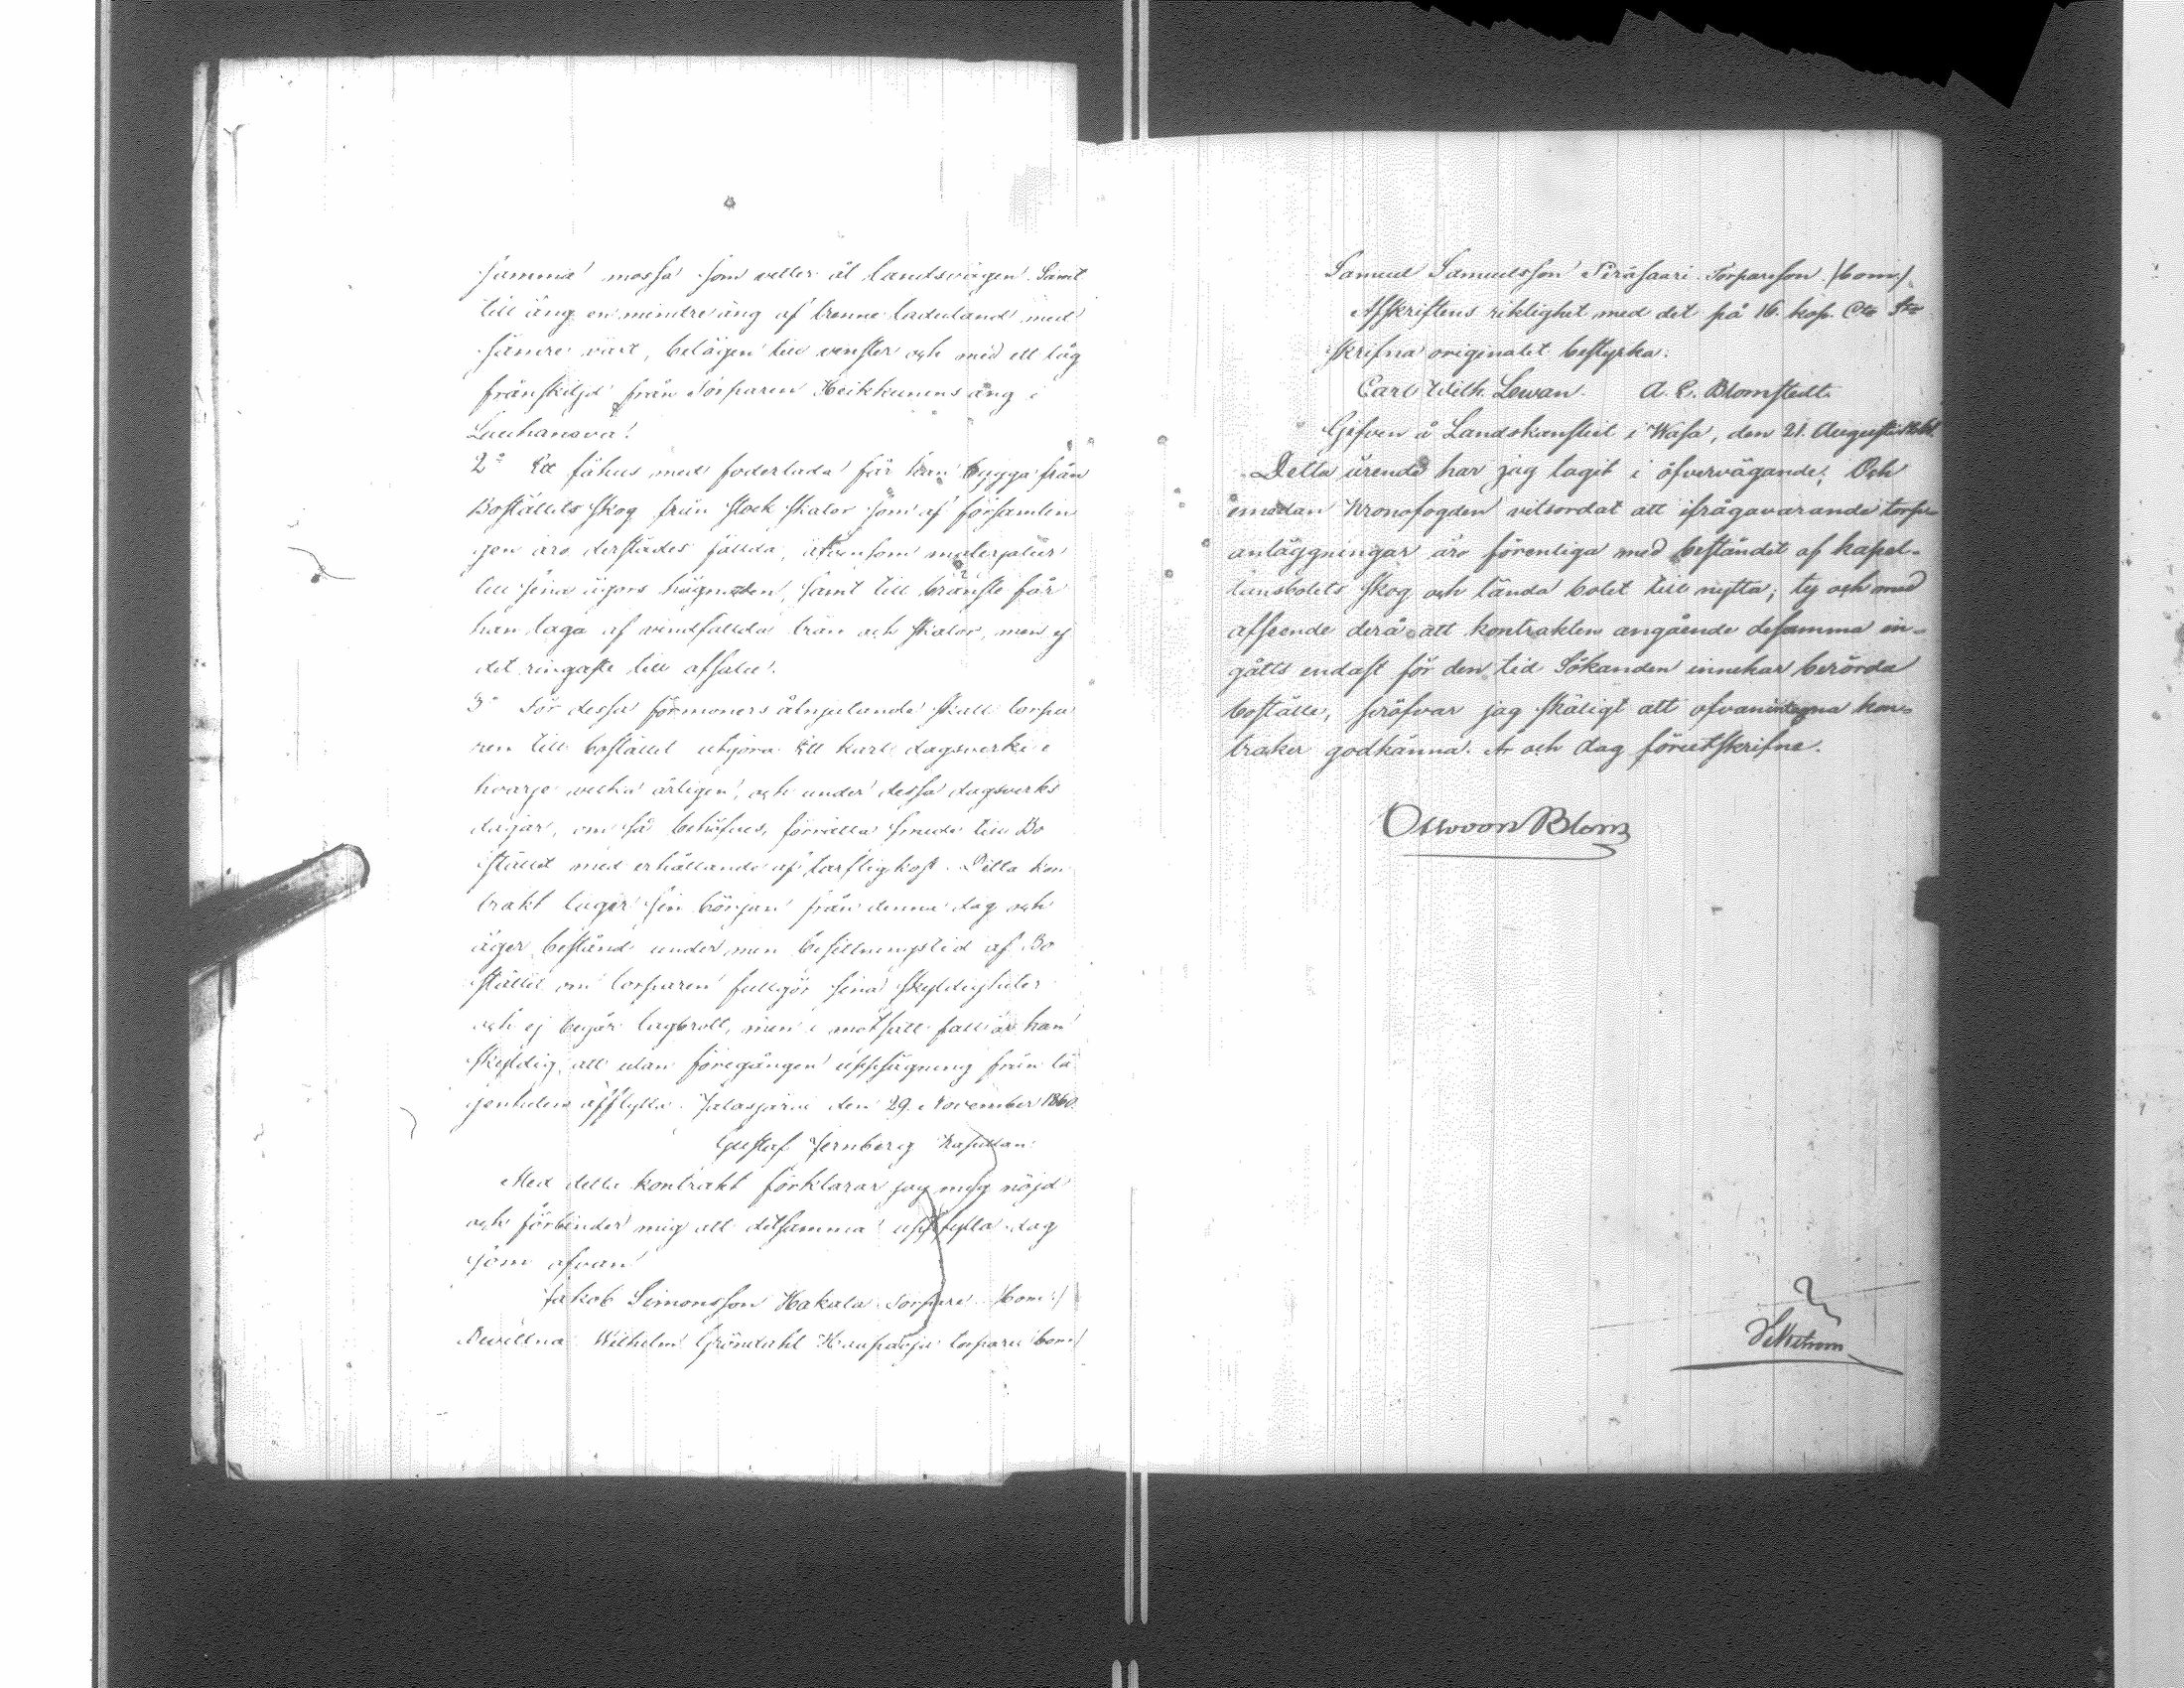 samma mossa som vetter åt landsvägen. Samt
till äng en mindre äng af trenne laduland med
sämre växt, belägen till venster och med ett tåg
frånskiljd från Torparen Heikkunens äng i
Lauhaneva.
2o Ett fähus med foderlada får han bygga från
Boställets skog från stock skator som af församlin
gen äro derstädes fällda, äfvensom materjaler
till sina ägors hägnaden, samt till bränsle får
han taga af vindfallda trän och skator, men ej
det ringaste till afsalu.
3o För dessa förmoners åtnjutande skall torpa
ren till bostället utgöra Ett karl dagsverke i
hvarje vecka årligen, och under dessa dagsverks
dagar, om så behöfves, förrätta smide till Bo
stället med erhållande af tarflig kost. Detta kon
trakt tager sin början från denna dag och
äger bestånd under min besittningstid af Bo
stället om torparen fullgör sina skyldigheter
och ej begår lagbrott, men i motsatt fall är han
skyldig att utan föregången uppsägning från lä
genheten afflytta. Jalasjärvi den 29. November 1860.
Gustaf Jernberg Kapellan
Med detta kontrakt förklarar jag mig nöjd
och förbinder mig att detsamma uppfylla dag
som ofvan
Jakob Simonsson Hakala Torpare (bom.)
Bevittna Wilhelm Gröndahl torpare (bom.)
Samuel Samuelsson Torpareson (bom.)
Afskriftens riktighet med det på 16. kop. Cta Sta
skrifna originalet bestyrka:
Carl Wilh. Lewan. A. E. Blomstedt.
Gifven å Landskansliet i Wasa, den 21. Augusti
Detta ärende har jag tagit i öfvervägande; Och
emedan Kronofogden vitsordat att ifrågavarande torp
anläggningar äro förenliga med beståndet af kapel-
lansbolets skog och lända bolet till nytta; ty och med
afseende derå att kontrakten angående desamma in-
gåtts endast för den tid Sökanden innehar berörda
boställe, pröfvar jag skäligt att ofvanintagna kon-
trakter godkänna. År och dag förutskrifne.
Blom